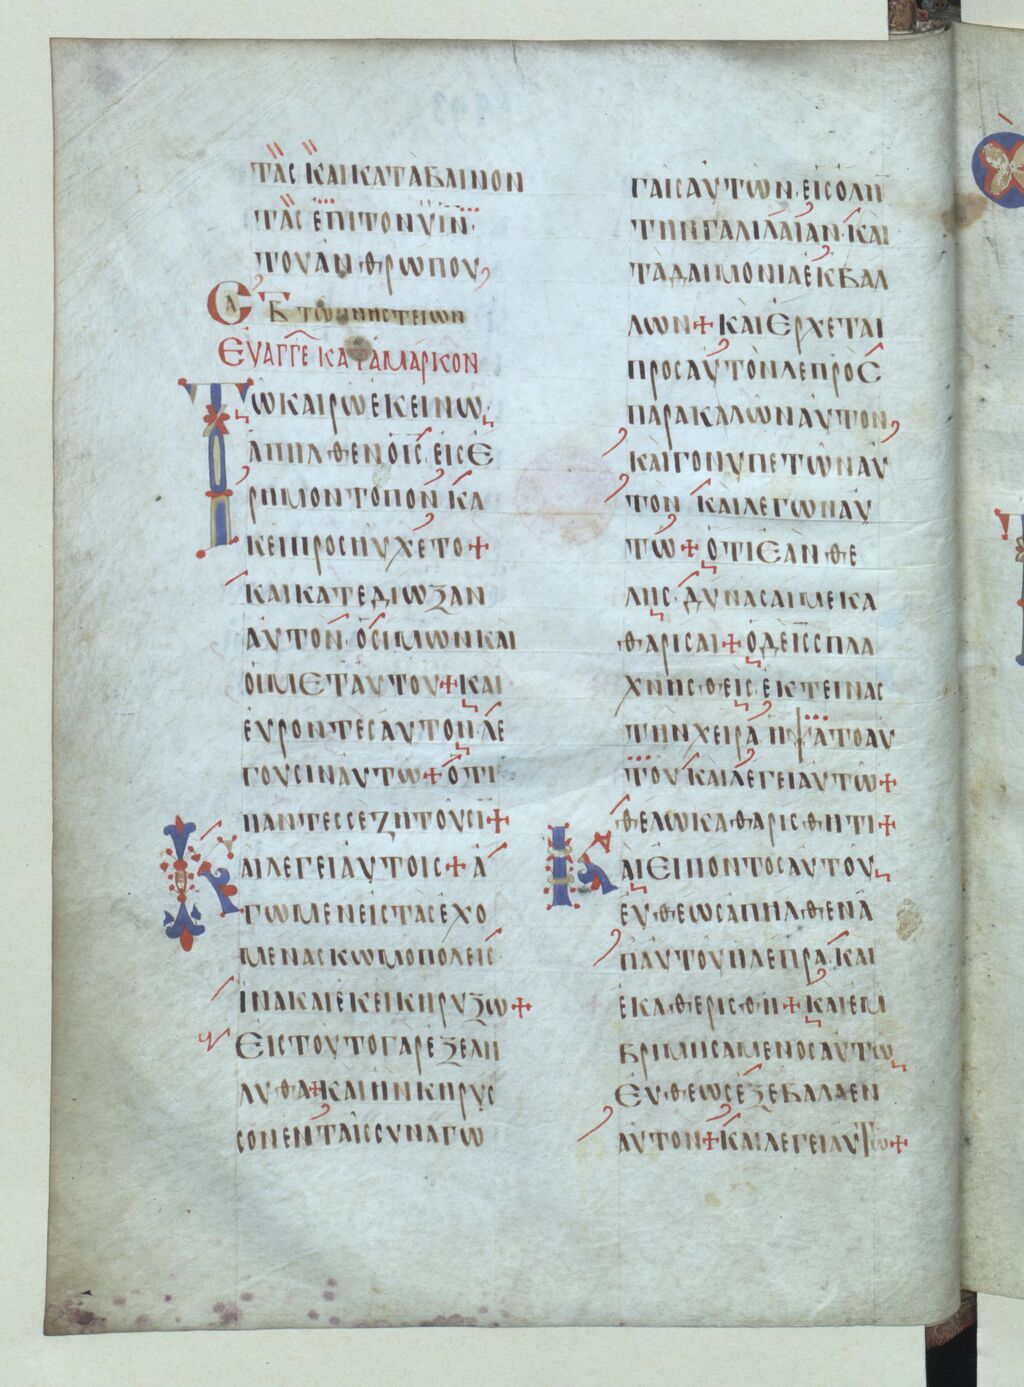 ΤΑС ΚΑΙ ΚΑΤΑΒΑΙΝΟΝ
ΤΑС ΕΠΙ ΤΟΝ ΥΙΝ
ΤΟΥ ΑΝΘΡΩΠΟΥ
СΑ Β ΤΩΝ ΝΗСΤΕΙΩΝ
ΕΥΑΓΓΕ ΚΑΤΑ ΜΑΡΚΟΝ
ΤΩ ΚΑΙΡΩ ΕΚΕΙΝΩ
ΑΠΗΛΘΕΝ Ο ΙС ΕΙС Ε
ΡΗΜΟΝ ΤΟΠΟΝ ΚΑ
ΚΕΙ ΠΡΟСΗΥΧΕΤΟ +
ΚΑΙ ΚΑΤΕΔΙΩΞΑΝ
ΑΥΤΟΝ Ο СΙΜΩΝ ΚΑΙ
ΟΙ ΜΕΤ ΑΥΤΟΥ + ΚΑΙ
ΕΥΡΟΝΤΕС ΑΥΤΟΝ ΛΕ
ΓΟΥСΙΝ ΑΥΤΩ + ΟΤΙ
ΠΑΝΤΕС СΕ ΖΗΤΟΥСΙ +
ΚΑΙ ΛΕΓΕΙ ΑΥΤΟΙС + Α
ΓΩΜΕΝ ΕΙС ΤΑС ΕΧΟ
ΜΕΝΑС ΚΩΜΟΠΟΛΕΙС
ΙΝΑ ΚΑΙ ΕΚΕΙ ΚΗΡΥΞΩ +
ΕΙС ΤΟΥΤΟ ΓΑΡ ΕΞΕΛΗ
ΛΥΘΑ + ΚΑΙ ΗΝ ΚΗΡΥС
СΟΝ ΕΝ ΤΑΙС СΥΝΑΓΩ
ΓΑΙС ΑΥΤΩΝ ΕΙС ΟΛΗ
ΤΗΝ ΓΑΛΙΛΑΙΑΝ ΚΑΙ
ΤΑ ΔΑΙΜΟΝΙΑ ΕΚΒΑΛ
ΛΩΝ + ΚΑΙ ΕΡΧΕΤΑΙ
ΠΡΟС ΑΥΤΟΝ ΛΕΠΡΟС
ΠΑΡΑΚΑΛΩΝ ΑΥΤΟΝ
ΚΑΙ ΓΟΝΥΠΕΤΩΝ ΑΥ
ΤΟΝ ΚΑΙ ΛΕΓΩΝ ΑΥ
ΤΩ + ΟΤΙ ΕΑΝ ΘΕ
ΛΗС ΔΥΝΑСΑΙ ΜΕ ΚΑ
ΘΑΡΙСΑΙ + Ο ΔΕ ΙС СΠΛΑ
ΧΝΗСΘΕΙС ΕΚΤΕΙΝΑС
ΤΗΝ ΧΕΙΡΑ ΗΨΑΤΟ ΑΥ
ΤΟΥ ΚΑΙ ΛΕΓΕΙ ΑΥΤΩ +
ΘΕΛΩ ΚΑΘΑΡΙСΘΗΤΙ +
ΚΑΙ ΕΙΠΟΝΤΟС ΑΥΤΟΥ
ΕΥΘΕΩС ΑΠΗΛΘΕΝ Α
Π ΑΥΤΟΥ Η ΛΕΠΡΑ ΚΑΙ
ΕΚΑΘΕΡΙСΘΗ + ΚΑΙ ΕΜ
ΒΡΙΜΗСΑΜΕΝΟС ΑΥΤΩ
ΕΥΘΕΩС ΕΞΕΒΑΛΛΕΝ
ΑΥΤΟΝ + ΚΑΙ ΛΕΓΕΙ ΑΥΤΩ +